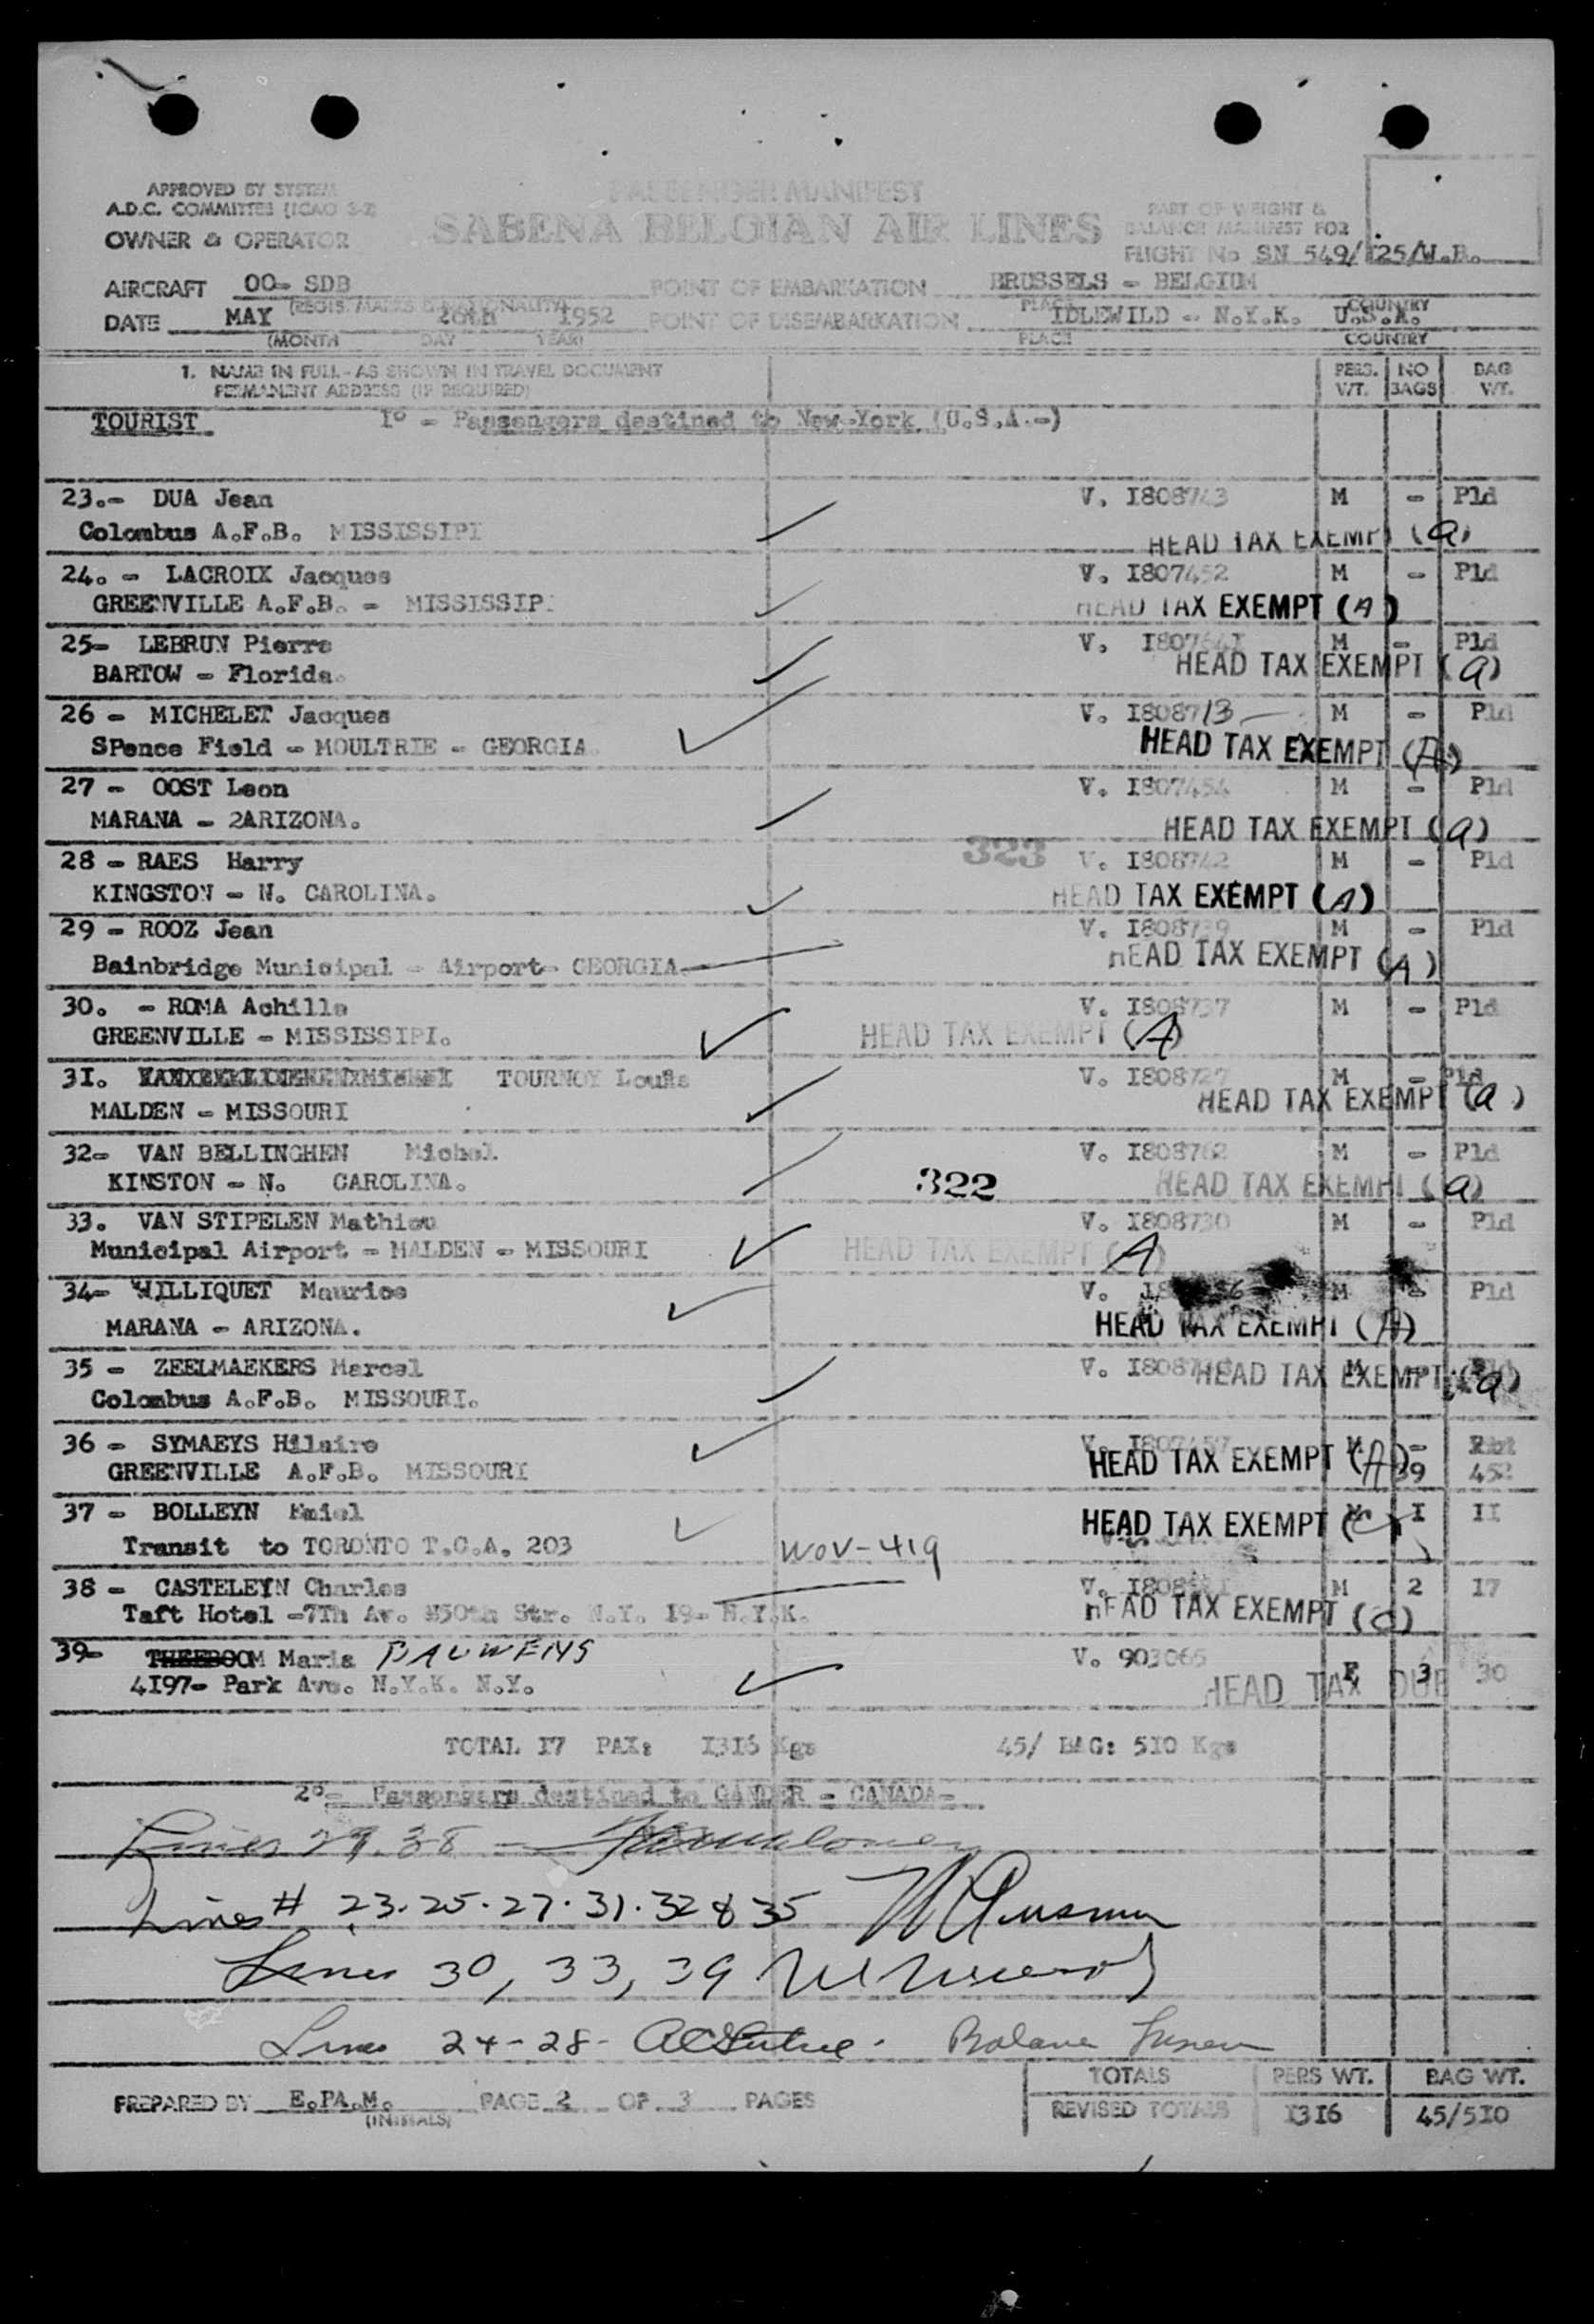 APPROVED BY SYSTEM
A.D.C. COMMITTEE (ICAO 3-2)
OWNER & OPERATOR
PASSENGER MANIFEST
SABENA BELGIAN AIR LINES
PART OF WEIGHT &
BALANCE MANIFEST FOR
FLIGHT No SN 549/125/W.B.
AIRCRAFT 00- SDB POINT OF EMBARKATION BRUSSELS - BELGIUM
(REGIS. MARKS & NATIONALITY) PLACE COUNTRY
DATE MAY 26th 1952 POINT OF DISEMBARKATION IDLEWILD - N.Y.K. U.S.A.
(MONTH DAY YEAR) PLACE COUNTRY
1. NAME IN FULL - AS SHOWN IN TRAVEL DOCUMENT PERS. NO BAG
PERMANENT ADDRESS (IF REQUIRED) WT. BAGS WT.
TOURIST I° - Passengers destined to New-York (U.S.A.-)
23.- DUA Jean V. I808743 M - Pld
Colombus A.F.B. MISSISSIPI HEAD TAX EXEMPT (a)
24. - LACROIX Jacques V. I807452 M - Pld
GREENVILLE A.F.B. - MISSISSIPI HEAD TAX EXEMPT (A)
25- LEBRUN Pierre V. I80 M - Pld
BARTOW - Florida. HEAD TAX EXEMPT (a)
26 - MICHELET Jacques V. I808713 M - Pld
SPence Field - MOULTRIE - GEORGIA. HEAD TAX EXEMPT (A)
27 - OOST Leon V. I807454 M - Pld
MARANA - 2ARIZONA. HEAD TAX EXEMPT (a)
28 - RAES Harry 323 V. I808742 M - Pld
KINGSTON - N. CAROLINA. HEAD TAX EXEMPT (A)
29 - ROOZ Jean V. I808739 M - Pld
Bainbridge Municipal - Airport- GEORGIA HEAD TAX EXEMPT (A)
30. - ROMA Achille V. I808737 M - Pld
GREENVILLE - MISSISSIPI. HEAD TAX EXEMPT (A)
3I. TOURNOY Louis V. I808727 M - Pld
MALDEN - MISSOURI HEAD TAX EXEMPT (a)
32- VAN BELLINGHEN Michel V. I808762 M - Pld
KINSTON - N. CAROLINA. 322 HEAD TAX EXEMPT (a)
33. VAN STIPELEN Mathieu V. I808730 M - Pld
Municipal Airport - MALDEN - MISSOURI HEAD TAX EXEMPT (A)
34- WILLIQUET Maurice V. M - Pld
MARANA - ARIZONA. HEAD TAX EXEMPT (A)
35 - ZEELMAEKERS Marcel V. HEAD TAX EXEMPT (a)
Colombus A.F.B. MISSOURI.
36 - SYMAEYS Hilaire V. M -
GREENVILLE A.F.B. MISSOURI HEAD TAX EXEMPT (A) 39 452
37 - BOLLEYN Emiel HEAD TAX EXEMPT (C) M I II
Transit to TORONTO T.C.A. 203 WOV-419
38 - CASTELEYN Charles V. M 2 17
Taft Hotel -7Th Av. N50th Str. N.Y. I9- N.Y.K. HEAD TAX EXEMPT (C)
39- THEEBOOM Maria PAUWENS V. 903065 F 3 30
4I97- Park Ave. N.Y.K. N.Y. HEAD TAX DUE
TOTAL I7 PAX: I3I6 Kgs 45/ BAG: 5I0 Kgs
2°- Passengers destined to GANDER - CANADA-
Lines 29.38 -
Lines # 23.25.27.31.32 & 35
Lines 30, 33, 39
Lines 24-28-
TOTALS PERS WT. BAG WT.
PREPARED BY E.PA.M. PAGE 2 OF 3 PAGES REVISED TOTALS I3I6 45/5I0
(INITIALS)